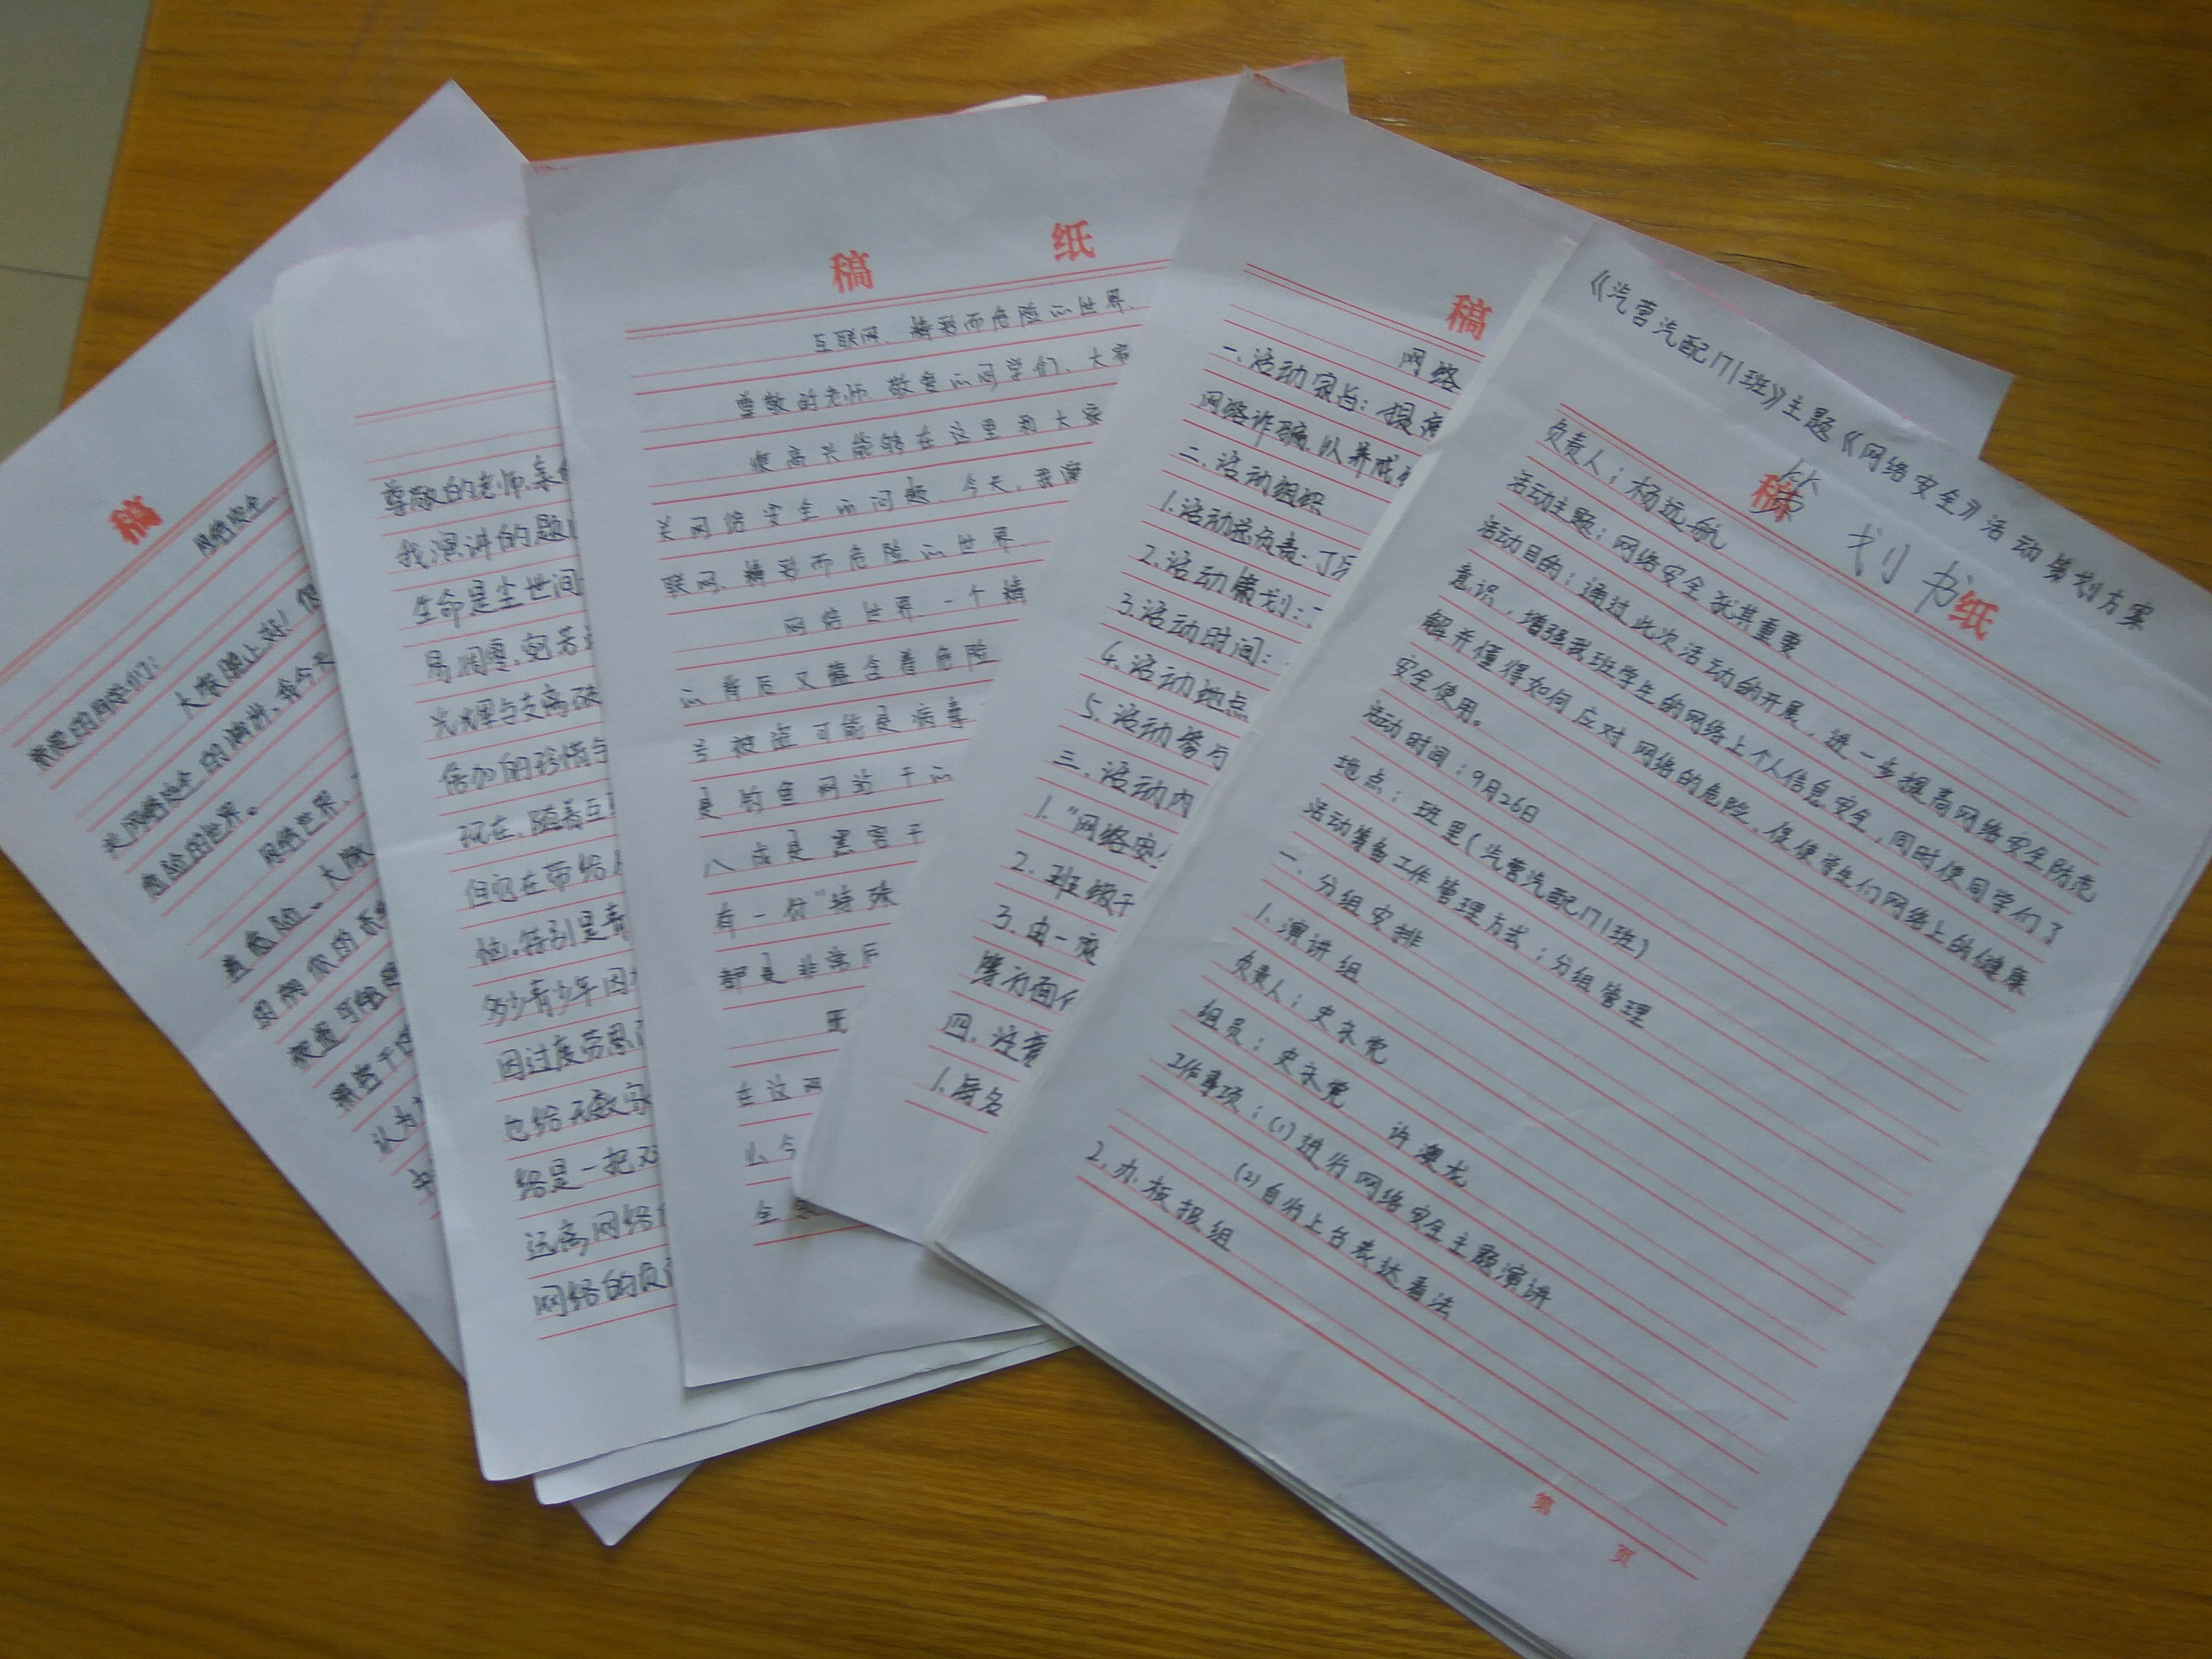 稿
网络安全
亲爱的同学们：
大家晚上好！很
关网络安全的演讲，我今天
危险的世界。
网络世界，
着危险。大家
被盗可能是
黑客干的
认为
尊敬的老师、亲
我演讲的题
生命是尘世间
易凋零，宛若
光辉与支离破
倍加的珍惜
现在，随着互
但它在带给人
恼。特别是青
多少青少年因
因过度劳累
也给无数家
络是一把双
远离网络
网络的负
稿 纸
互联网，精彩而危险的世界，
尊敬的老师，敬爱的同学们，大家
很高兴能够在这里和大家
关网络安全的问题，今天，我演
联网，精彩而危险的世界
网络世界，一个精
的背后又蕴含着危险
号被盗可能是病毒
是钓鱼网站干的
八成是黑客干
有一份“特殊
都是非常厉
在这网
么今
全
稿
网络
一、活动宗旨：提高
网络诈骗，以养成
二、活动组织
1.活动总负责：丁
2.活动策划：
3.活动时间：
4.活动地点
5.活动参与
三、活动内
1.“网络安全
2.班级干
3.由一
四、注意
《汽营汽配171班》主题《网络安全》活动策划方案
稿 纸
策划书
负责人：杨远航
活动主题：网络安全尤其重要
活动目的：通过此次活动的开展，进一步提高网络安全防范
意识，增强我班学生的网络上个人信息安全，同时使同学们了
解并懂得如何应对网络的危险，促使学生们网络上的健康
安全使用。
活动时间：9月26日
地点：班里（汽营汽配171班）
活动筹备工作管理方式：分组管理
一、分组安排
1.演讲组
负责人：史永党
组员：史永党 许澳龙
工作事项：(1)进行网络安全主题演讲
(2)自行上台表达看法
2.办板报组
第 页